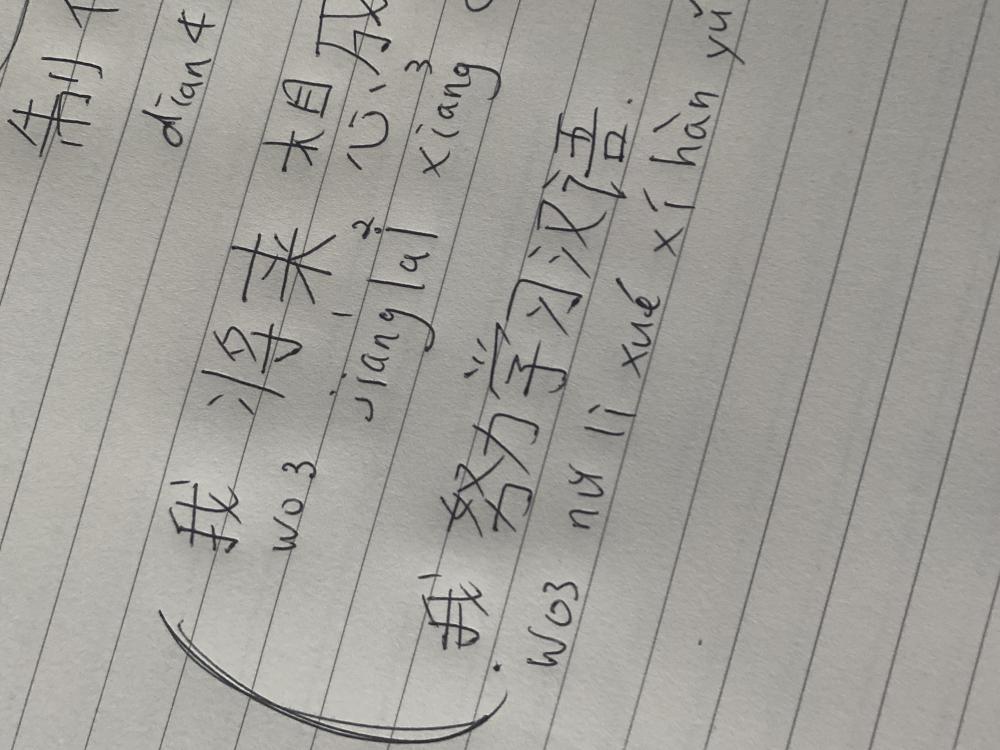 制
dian 4
我 将来 想 成
wo3 jiang lai2 xiang3
我 努力学习汉语.
wo3 nǔ lì xué xí hàn yǔ